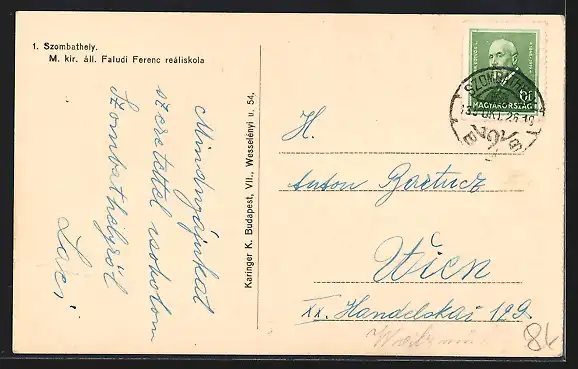 1. Szombathely.
M. kir. áll. Faludi Ferenc reáliskola
Mindnyájukat
szeretettel csókolom
Szombathelyről
Laci
Karinger K. Budapest, VII., Wesselényi u. 54.
MAGYARORSZÁG
SZOMBATHELY
H.
Anton Bartucz
Wien
XX. Handelskai 129.